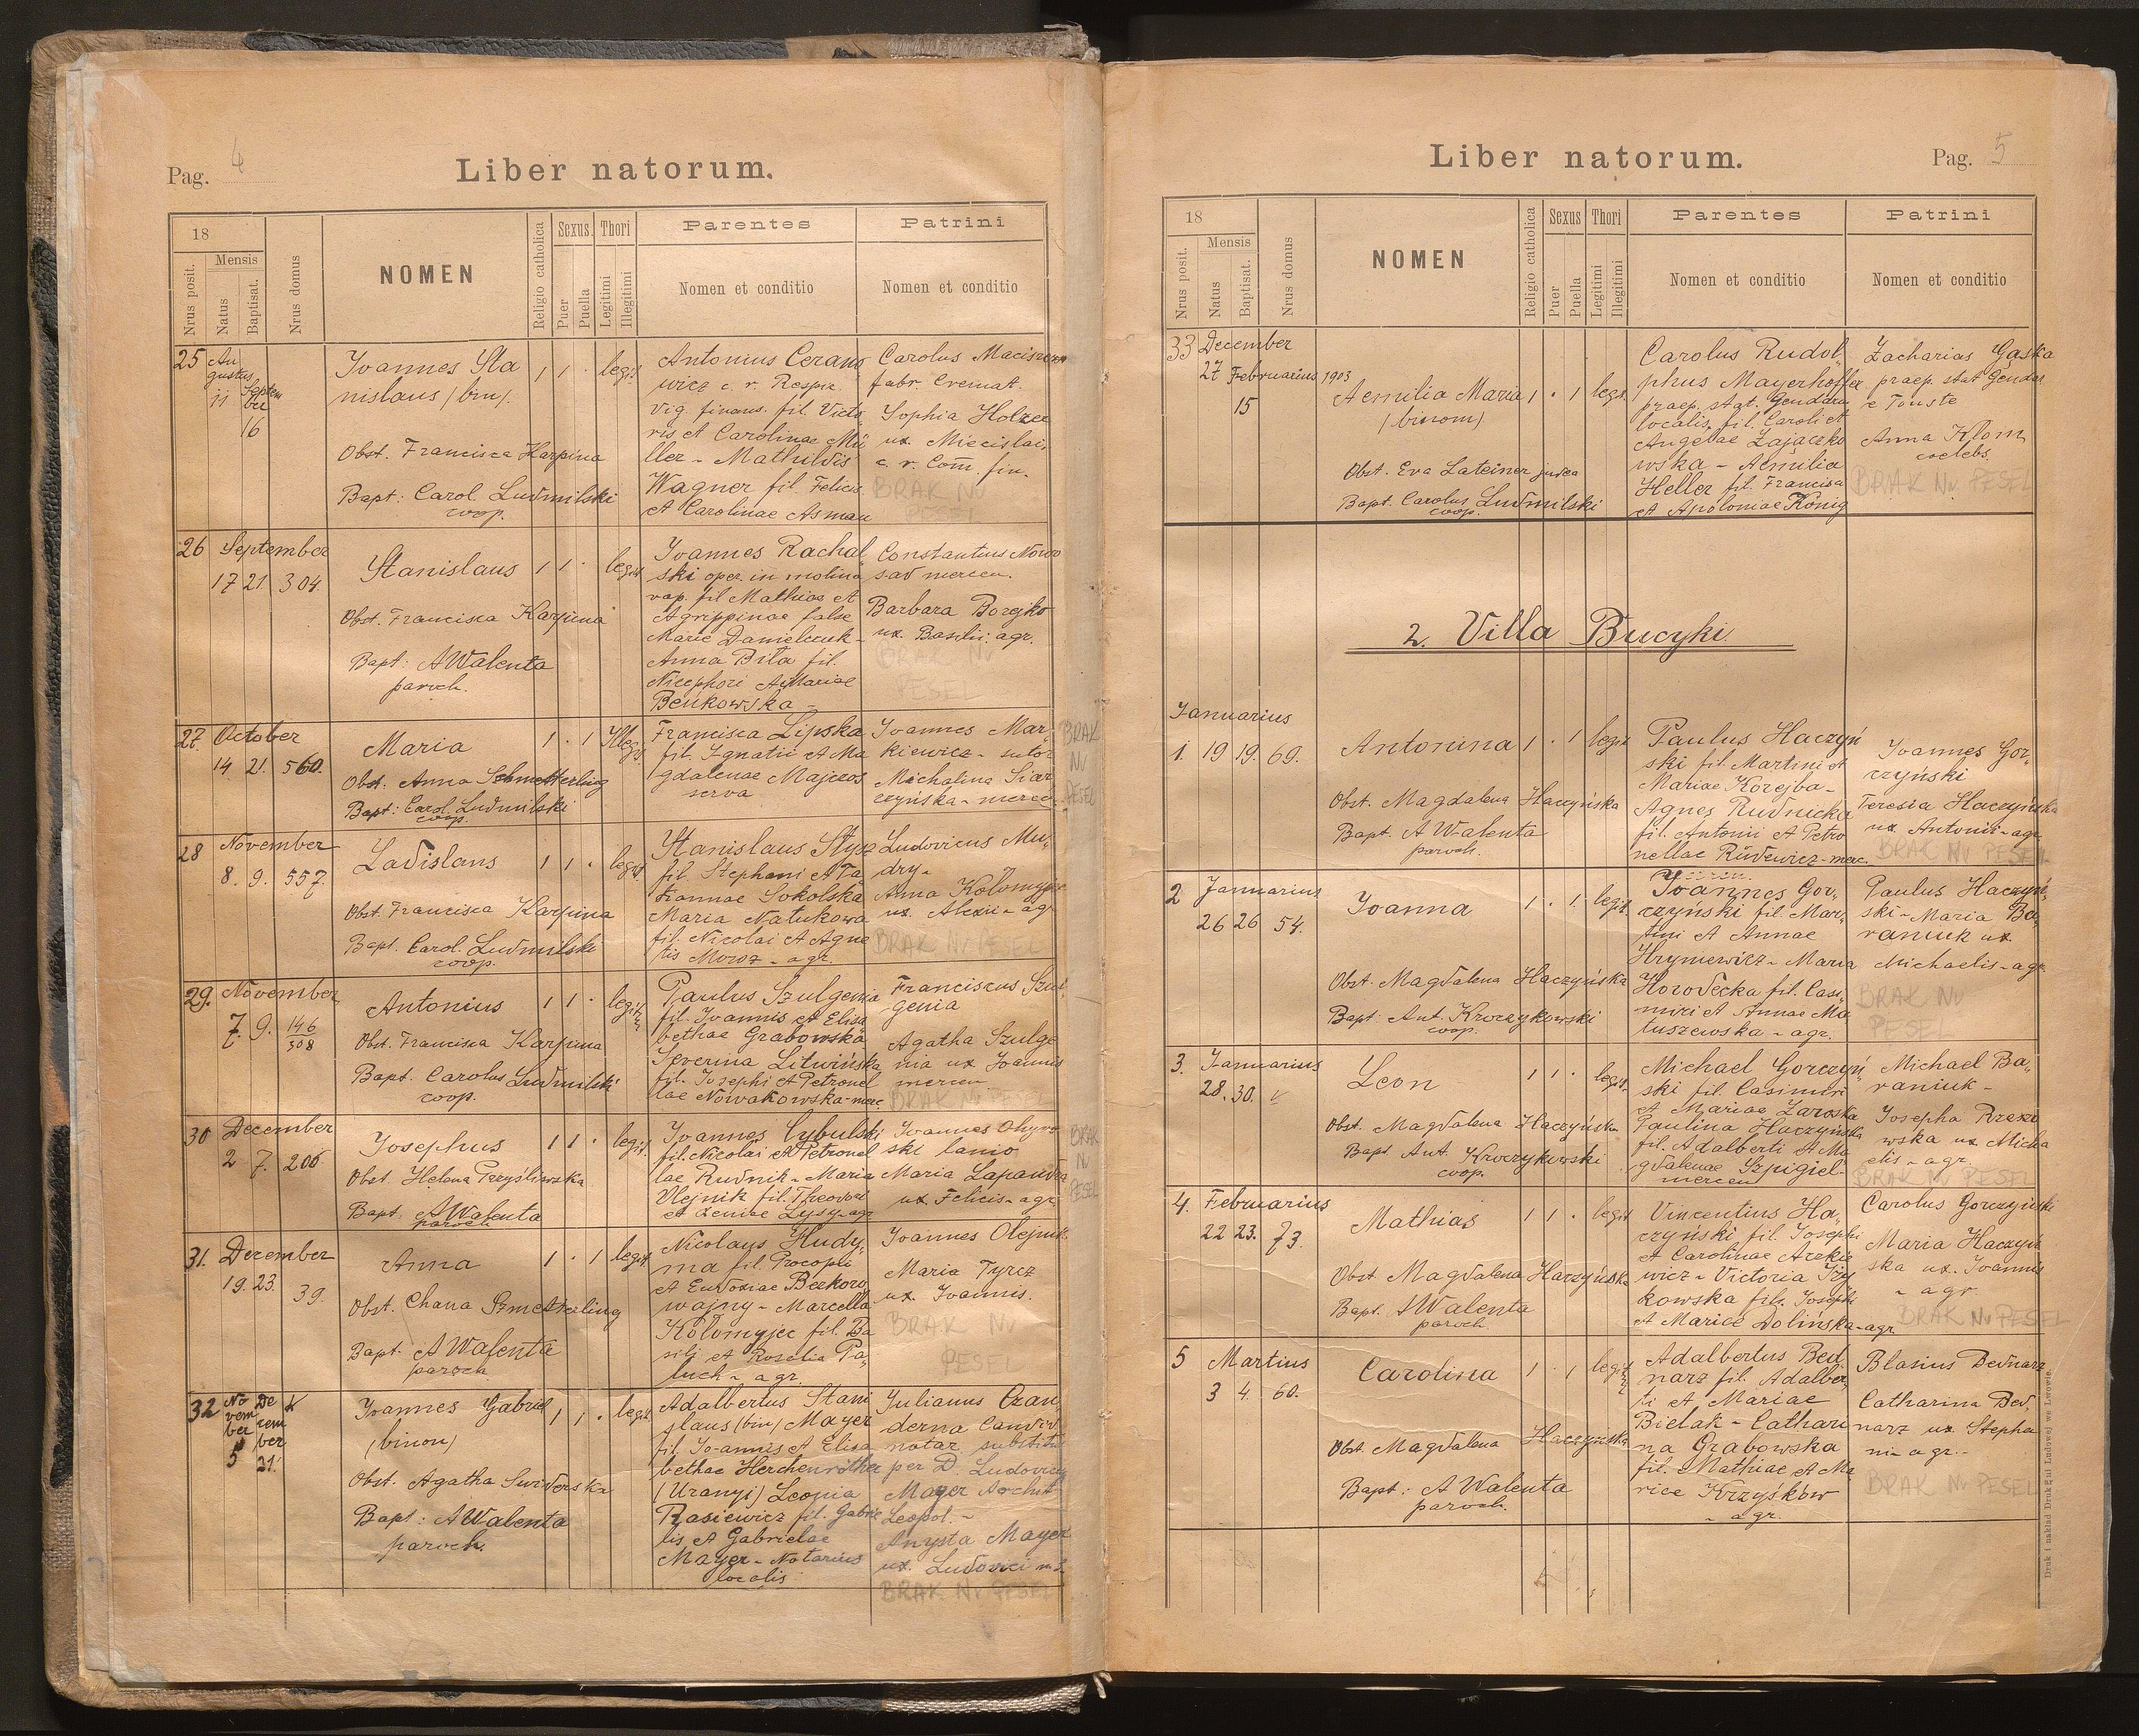 Pag. 4
Liber natorum.
18
Nrus posit.
Mensis
Natus
Baptisat.
Nrus domus
NOMEN
Religio catholica
Sexus.
Puer
Puella
Thori
Legitimi
Illegitimi
Parentes
Nomen et conditio
Patrini
Nomen et conditio
25 Au
gustus
11 Septem
ber
16
Joannes Sta
nislaus (bin)
Obst. Francisca Karpina
Bapt: Carol. Ludmilski
coop.
1 1 · legit.
Antonius Ceran
wicz c. r. Respic.
vig. finans. fil. Victo
ris et Carolinae Mü
ller - Mathildis
Wagner fil. Felicis
et Carolinae Asman
Carolus
fabr. Cremat.
Sophia
ux. Miecislai,
c. r. Com. fin.
BRAK NV
PESEL
26 September
17 21 304.
Stanislaus
Obst. Francisca Karpina
Bapt: A Walenta
paroch.
1 1 · legit
Joannes Rachal
ski oper. in molino
vap. fil Mathiae et
Agrippinae false
Marie Danielczuk -
Anna Bita fil.
Nicephori et Mariae
Beńkowska -
Constantius Nowo
sad mercen.
Barbara Borejko
ux. Basilii: agr.
BRAK NV
PESEL
27. October
14 21. 560.
Maria
Obst: Anna Schmetterling
Bapt: Carol. Ludmilski
coop.
1 · 1 Illegit.
Francisca Lipska
fil. Ignatii et Ma
gdalenae Majcros
serva
Joannes Mar,
kiewicz - sutor
Michalina Siar
czyńska - mercen.
BRAK
NV
PESEL
28 November
8. 9. 557.
Ladislaus
Obst. Francisca Karpina
Bapt. Carol. Ludmilski
coop.
1 1 · legit.
Stanislaus Stysz
fil. Stephani et Ta
tiannae Sokolska
Maria Natukowa
fil. Nicolai et Agne
tis Moroz - agr.
Ludovicus Mu,
dry -
Anna Kołomyjec
ux. Alexii - agr.
BRAK NV PESEL
29. November
7. 9. 146
308
Antonius
Obst. Francisca Karpina
Bapt. Carolus Ludmilski
coop.
1 1 · legit.
Paulus Szulgenia
fil. Joannis et Elisa
bethae Grabowska
Severina Litwińska
fil. Josephi et Petronel
lae Nowakowska - merc.
Franciscus Szul
genia
Agatha Szulge
nia ux Joannis
mercen.
BRAK NV PESEL
30 December
2 7. 206.
Josephus
Obst. Helena Przyśliwska
Bapt. A Walenta
paroch.
1 1 · legit.
Joannes Cybulski
fil. Nicolai et Petronel
lae Rudnik - Maria
Olejnik fil. Theodori
et Xeniae Łysy - agr
Joannes Ohyrs
ski lanio
Maria Łapanda
ux Felicis - agr.
BRAK
N
PESEL
31. December
19. 23. 39.
Anna
Obst. Chana Szmetterling
Bapt. A Walenta
paroch.
1 · 1 legit.
Nicolaus Hudy,
ma fil. Procopii
et Eudoxiae Bezkoro
wajny - Marcella
Kołomyjec fil. Ba
silii et Rosalia Pa,
luch - agr.
Joannes Olejnik
Maria Tyrcz
ux. Joannis.
BRAK NV
PESEL
32 No
vem
ber
5
De
cem
ber
21.
Joannes Gabriel
(binom)
Obst. Agatha Swiderska
Bapt: A Walenta
paroch.
1 1 · legit.
Adalbertus Stani
slaus (bin) Mayer
fil. Jo-annis et Elisa
bethae Herchenröther
(Uranyi) Leonia
Rasiewicz fil. Gabrie
lis et Gabrielae
Mayer - Notarius
localis
Julianus Czan,
derna Candid.
notar. substitu
per D. Ludovicus
Mayer Archit.
Leopol. -
Anysta Mayer
ux. Ludovici
BRAK NV PESEL
Liber natorum.
Pag. 5
18
Nrus posit.
Mensis
Natus
Baptisat.
Nrus domus
NOMEN
Religio catholica
Sexus
Puer
Puella
Thori
Legitimi
Illegitimi
Parentes
Nomen et conditio
Patrini
Nomen et conditio
33 December
27 Februarius 1903
15
Aemilia Maria
(binom)
Obst. Eva Lateiner judea
Bapt. Carolus Ludmilski
coop.
1 · 1 legit.
Carolus Rudol,
phus Mayerhoffer
praep. stat. Gendarm
localis, fil. Caroli et
Angelae Zajączko
wska - Aemilia
Heller fil. Francisci
et Apoloniae König
Zacharias Gaska
praep. stat Gendar.
e Touste
Anna Klom
coelebs.
BRAK NV PESEL
2. Villa Bucyki
Januarius
1. 19 19. 69.
Antonina
Obst. Magdalena Haczyńska
Bapt. A Walenta
paroch.
1 · 1 legit
Paulus Haczyń
ski fil. Martini et
Mariae Korejba -
Agnes Rudnicka
fil. Antonii et Petro
nellae Rudewicz - merc.
Joannes Gor,
czyński
Teresia Haczyńska
ux. Antonii - agr
BRAK NV PESEL
2 Januarius
26 26 54.
Joanna
Obst. Magdalena Haczyńska
Bapt: Ant. Kroczykowski
coop.
1 · 1. legit.
Joannes Gor,
czyński fil. Mar,
tini et Annae
Hryniewicz - Maria
Horodecka fil. Casi,
miri et Annae Ma
tuszewska - agr.
Paulus Haczyń,
ski - Maria Ba,
raniuk ux.
Michaelis - agr.
BRAK NV
PESEL
3. Januarius
28. 30.
Leon
Obst. Magdalena Haczyńska
Bapt Ant. Kroczykowski
coop.
1 1 · legit.
Michael Gorczyń
ski fil. Casimiri
et Mariae Zarośka
Paulina Haczyńska
fil. Adalberti et Ma
gdalenae Szpigiel -
mercen
Michael Ba,
raniuk -
Josepha
wska ux Micha
elis - agr.
BRAK NV PESEL
4. Februarius
22 23. 73.
Mathias
Obst Magdalena Haczyńska
Bapt. A Walenta
paroch.
1 1 · legit
Vincentius Ha,
czyński fil. Josephi
et Carolinae Aczkie
wicz - Victoria Izy
kowska fil. Josephi
et Mariae Dolinska - agr
Carolus Gorczyński
Maria Haczyń
ska ux. Joannis
- agr.
BRAK NV PESEL
5 Martius
3 4. 60.
Carolina
Obst. Magdalena Haczyńska
Bapt: A Walenta
paroch.
1 · 1 legit.
Adalbertus Bed,
narz fil. Adalber,
ti et Mariae
Bielak - Cathari
na Grabowska
fil. Mathiae et Ma
riae Krzyśków
- agr.
Blasius Bednarz
Catharina Bed,
narz ux. Stepha
ni - agr. -
BRAK NV PESEL
Druk i nakład Drukarni Ludowej we Lwowie.